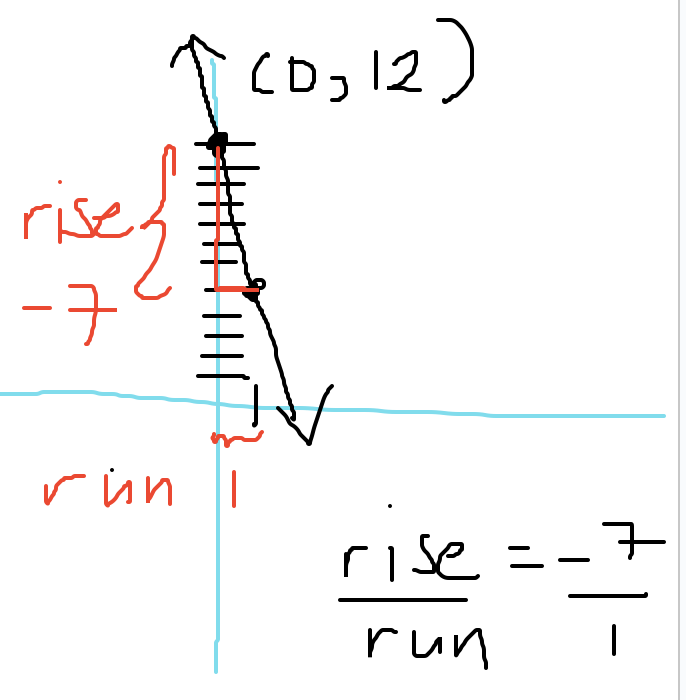 (0,12)
rise
-7
run 1
rise = -7
run 1